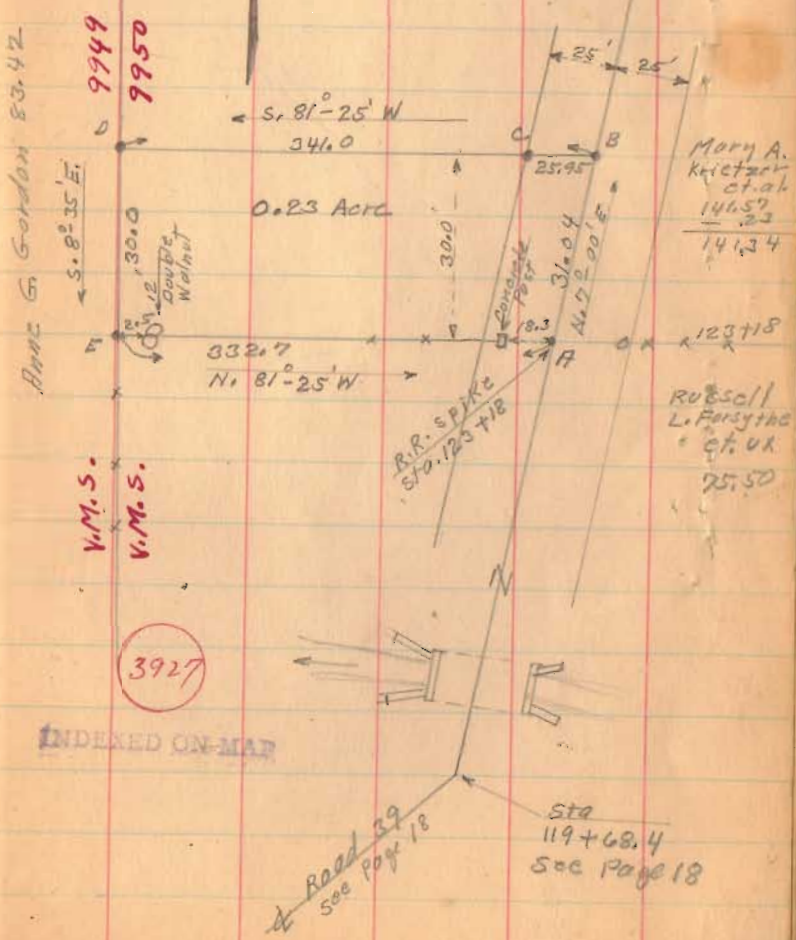 Anne G Gordon 83.42
9949
9950
25'
25'
S. 81°-25' W
341.0
D
C
B
25.95
Mary A.
Krietzer
et.al.
141.57
.23
141.34
S. 8°-35' E.
30.0
0.23 Acre
30.0'
31.04
N. 7°-00' E
12"
Double
Walnut
Concrete
Post
18.3
E
A
123+18
332.7
N. 81°-25' W
R.R. Spike
Sta. 123+18
Russell
L. Forsythe
et. ux
75.50
V.M.S.
V.M.S.
3927
INDEXED ON MAP
Sta
119+68.4
See Page 18
Road 39
See Page 18